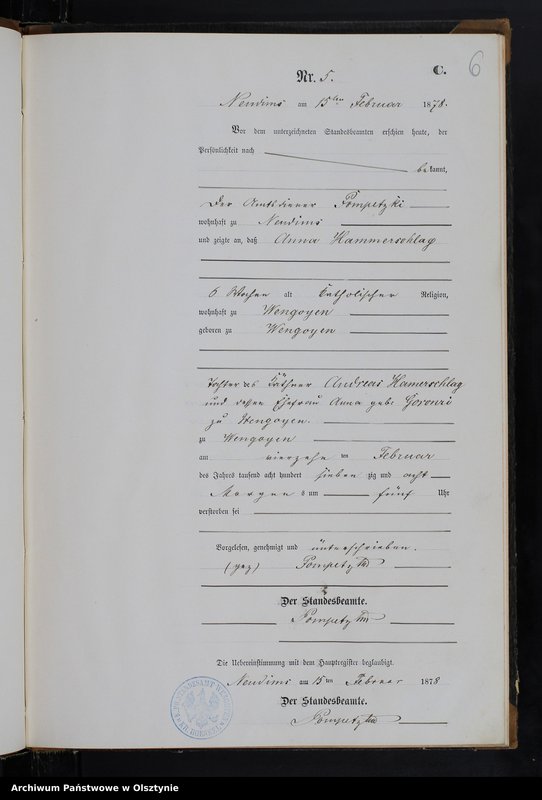 C.
6
Nr. 5.
Neudims am 15ten Februar 1878.
Vor dem unterzeichneten Standesbeamten erschien heute, der
Persönlichkeit nach
bekannt,
Der Amtsdiener Pompetzki
wohnhaft zu Neudims
und zeigte an, daß Anna Hammerschlag
6 Wochen alt katholischer Religion,
wohnhaft zu Wengoyen
geboren zu Wengoyen
Tochter des Käthner Andreas Hamerschlag
und dessen Ehefrau Anna geb.
zu Wengoyen.
zu Wengoyen
am vierzehn ten Februar
des Jahres tausend acht hundert sieben zig und acht
Morgen s um fünf Uhr
verstorben sei
Vorgelesen, genehmigt und unterschrieben.
(gez) Pompetzki
Der Standesbeamte.
Die Uebereinstimmung mit dem Hauptregister beglaubigt.
Neudims am 15ten Februar 1878
Der Standesbeamte.
Archiwum Państwowe w Olsztynie